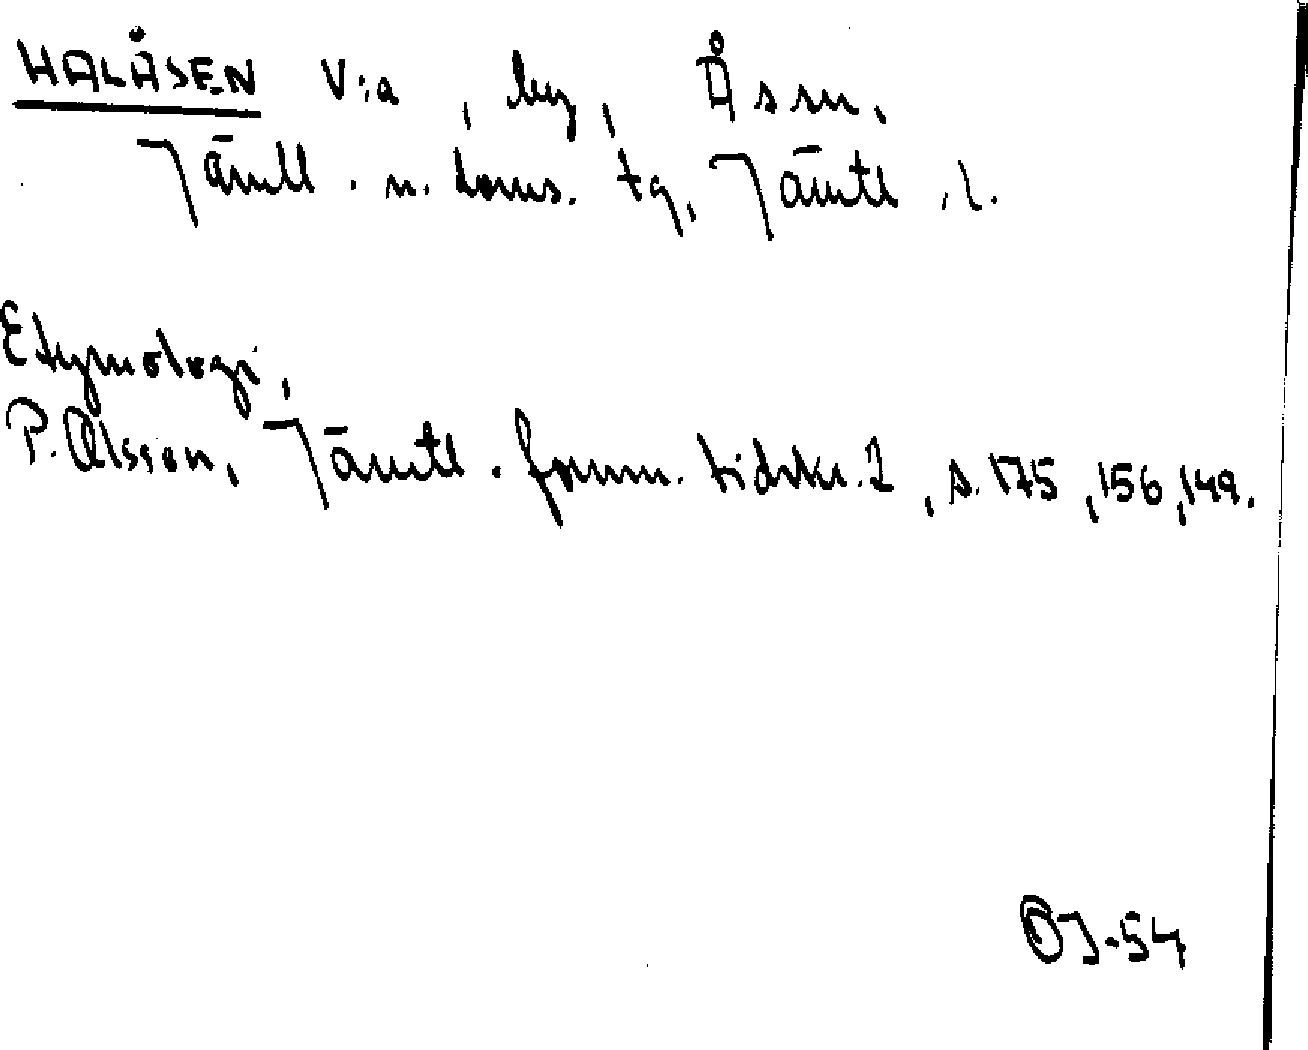 HALÅSEN V:a, by, Ås sn,
Jämtl. n. doms. tg, Jämtl. l.
Etymologi,
P. Olsson, Jämtl. fornm. tidskr. 1, s. 175, 156, 149.
OJ-54